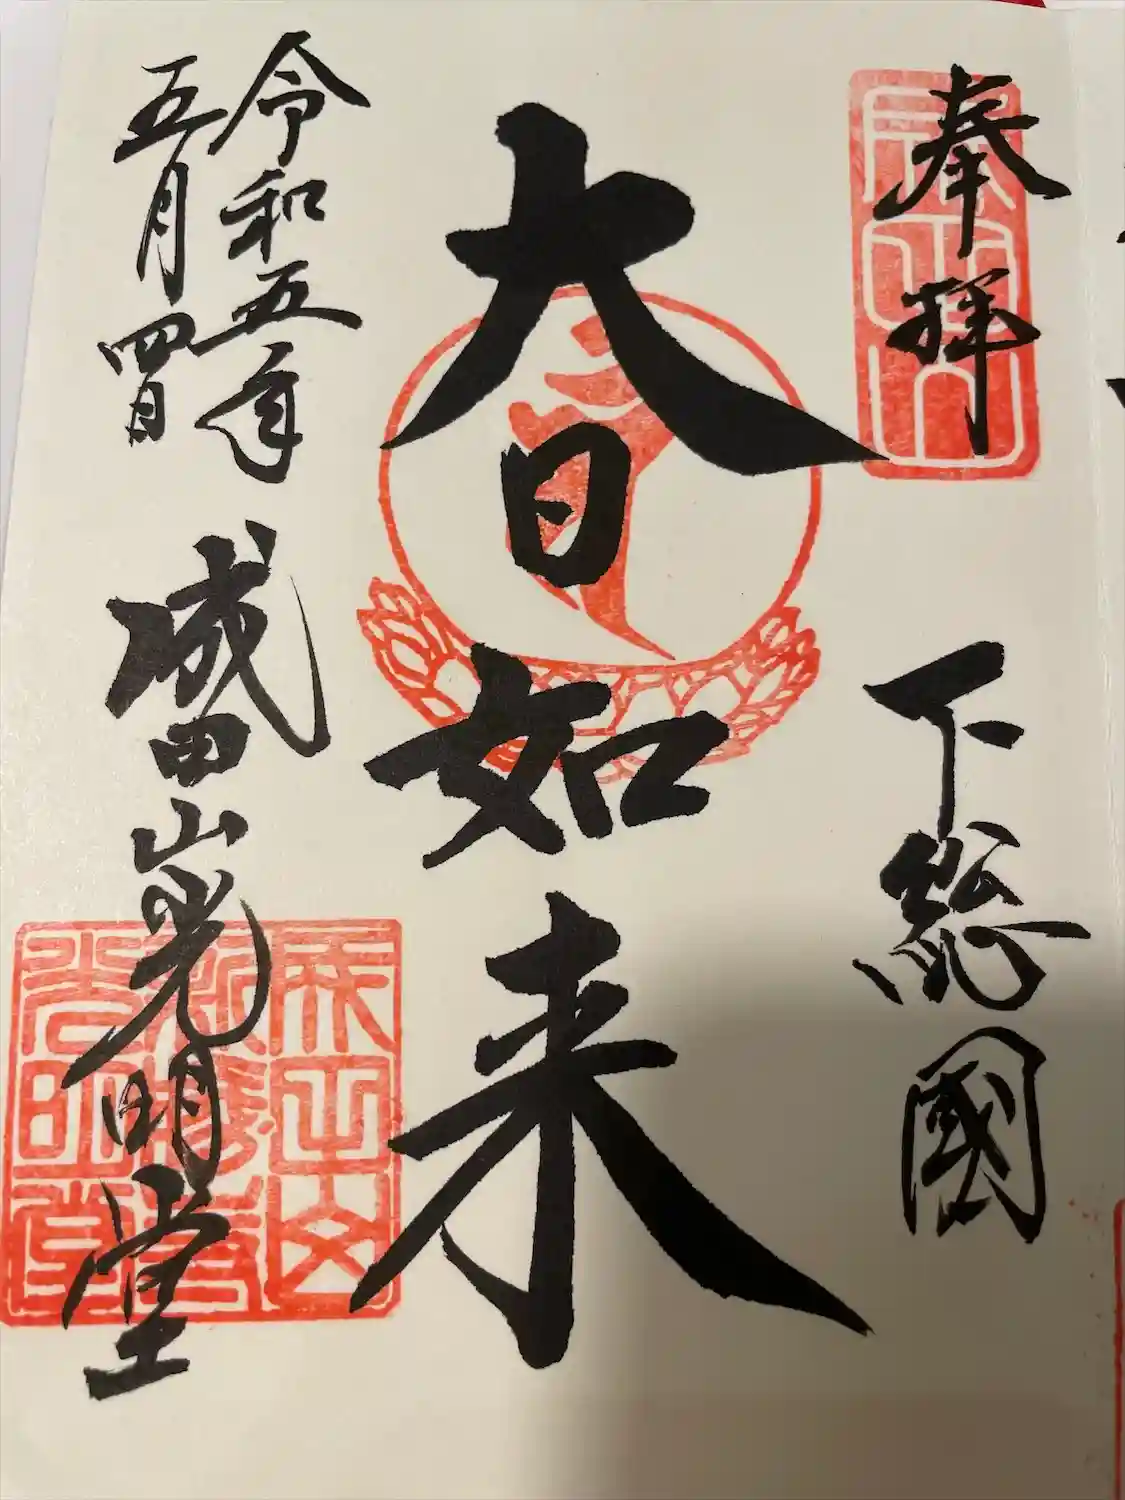 奉拝
下総國
大日如来
令和五年
五月四日
成田山光明堂